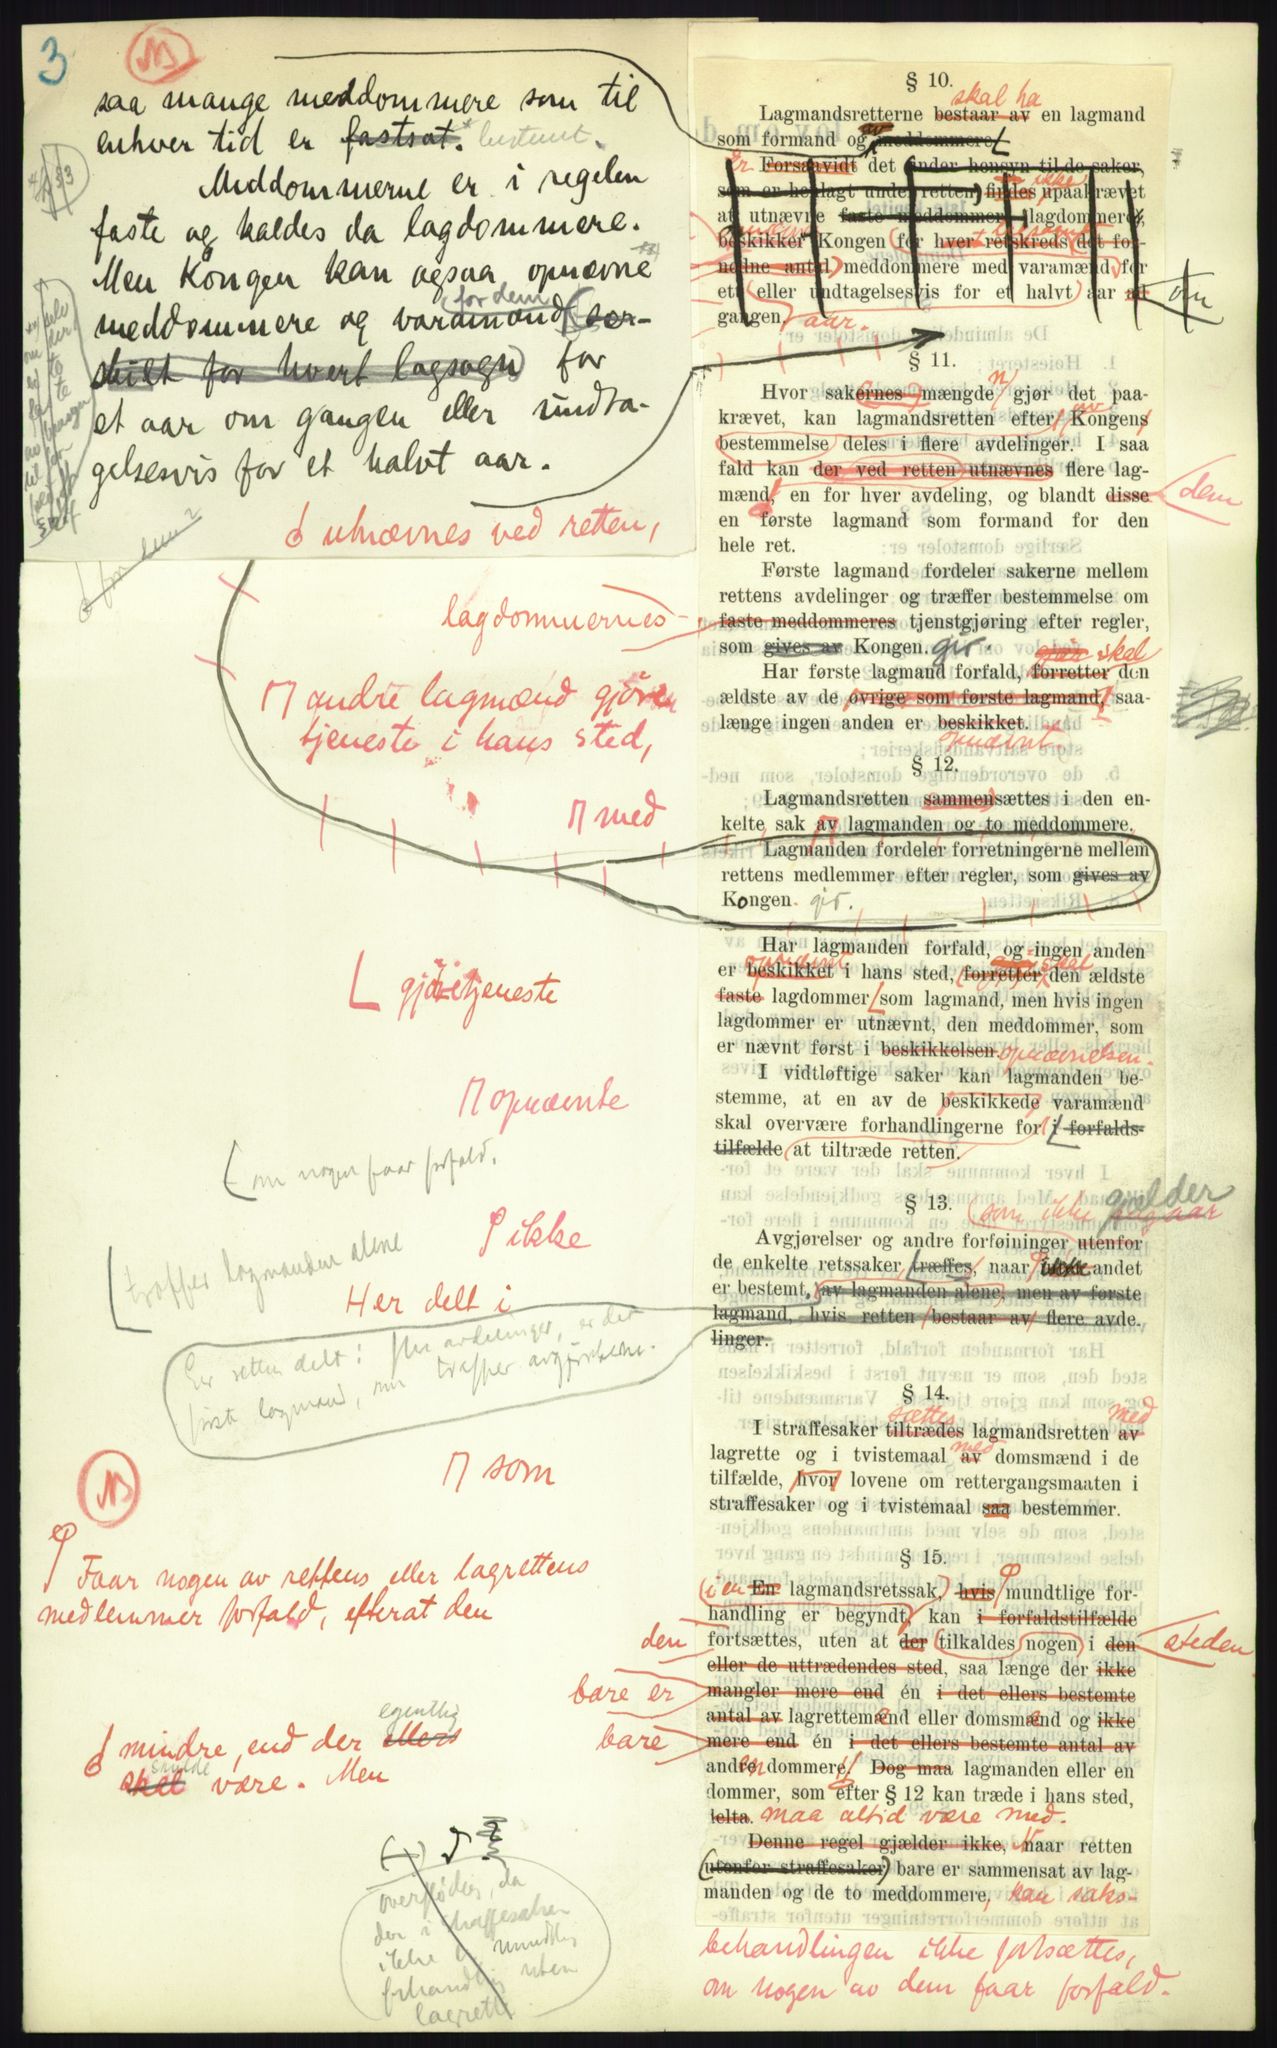 3
saa mange meddommere som til
enhver tid er fastsat. bestemt.
Meddommerne er i regelen
faste og kaldes da lagdommere.
Men Kongen kan ogsaa opnævne
for dem
meddommere og varamænd (sær-
skilt for hvert lagsogn) for
et aar om gangen eller undta-
gelsesvis for et halvt aar.
utnævnes ved retten,
lagdommernes
andre lagmænd gjøre
tjeneste i hans sted,
med
gjøre tjeneste
opnævnte
om nogen faar forfald.
ikke
træffer lagmanden alene
Her delt i
Er retten delt i flere avdelinger, er det
første lagmand, som træffer avgjørelserne.
som
Faar nogen av rettens eller lagrettens
medlemmer forfald, efterat den
den
bare er
egentlig
mindre, end der ellers
bare
skulde
skal være. Men
overflødig, da
der i straffesaker
ikke er mundtlig
forhandling uten
lagrette
§ 10.
skal ha
Lagmandsretterne bestaar av en lagmand
som formand og av meddommere
Er Forsaavidt det under hensyn til de saker,
som er henlagt under retten, findes ikke upaakrævet
at utnævne faste meddommere (lagdommere),
beskikker Kongen (for hver retskreds det for-
nødne antal) meddommere med varamænd for
ett (eller undtagelsesvis for et halvt) aar ad
om
gangen. aar.
§ 11.
Hvor sakernes mængde gjør det paa-
krævet, kan lagmandsretten efter Kongens
bestemmelse deles i flere avdelinger. I saa
fald kan der ved retten utnævnes flere lag-
mænd, en for hver avdeling, og blandt disse
dem
en første lagmand som formand for den
hele ret.
Første lagmand fordeler sakerne mellem
rettens avdelinger og træffer bestemmelse om
faste meddommeres tjenstgjøring efter regler,
som gives av Kongen. gir.
gjør skal
Har første lagmand forfald, forretter den
ældste av de øvrige som første lagmand, saa-
længe ingen anden er beskikket.
opnævnt.
§ 12.
Lagmandsretten sammensættes i den en-
kelte sak av lagmanden og to meddommere.
Lagmanden fordeler forretningerne mellem
rettens medlemmer efter regler, som gives av
Kongen. gir.
Har lagmanden forfald, og ingen anden
opnævnt skal
er beskikket i hans sted, forretter den ældste
faste lagdommer som lagmand, men hvis ingen
lagdommer er utnævnt, den meddommer, som
er nævnt først i beskikkelsen. opnævnelsen.
I vidtløftige saker kan lagmanden be-
stemme, at en av de beskikkede varamænd
skal overvære forhandlingerne for i forfalds-
tilfælde at tiltræde retten.
§ 13.
(som ikke gjælder
Avgjørelser og andre forføininger utenfor
de enkelte retssaker træffes, naar ikke andet
er bestemt, av lagmanden alene, men av første
lagmand, hvis retten bestaar av flere avde-
linger.
§ 14.
sættes med
I straffesaker tiltrædes lagmandsretten av
med
lagrette og i tvistemaal av domsmænd i de
tilfælde, hvor lovene om rettergangsmaaten i
straffesaker og i tvistemaal saa bestemmer.
§ 15.
(i en En lagmandsretssak, hvis mundtlige for-
handling er begyndt, kan i forfaldstilfælde
fortsættes, uten at der tilkaldes nogen i den
steden
eller de uttrædendes sted, saa længe der ikke
mangler mere end én i det ellers bestemte
antal av lagrettemænd eller domsmænd og ikke
mere end én i det ellers bestemte antal av
andre dommere. Dog maa lagmanden eller en
dommer, som efter § 12 kan træde i hans sted,
delta. maa altid være med.
Denne regel gjælder ikke, naar retten
(utenfor straffesaker) bare er sammensat av lag-
manden og de to meddommere, kan saks-
behandlingen ikke fortsættes,
om nogen av dem faar forfald.